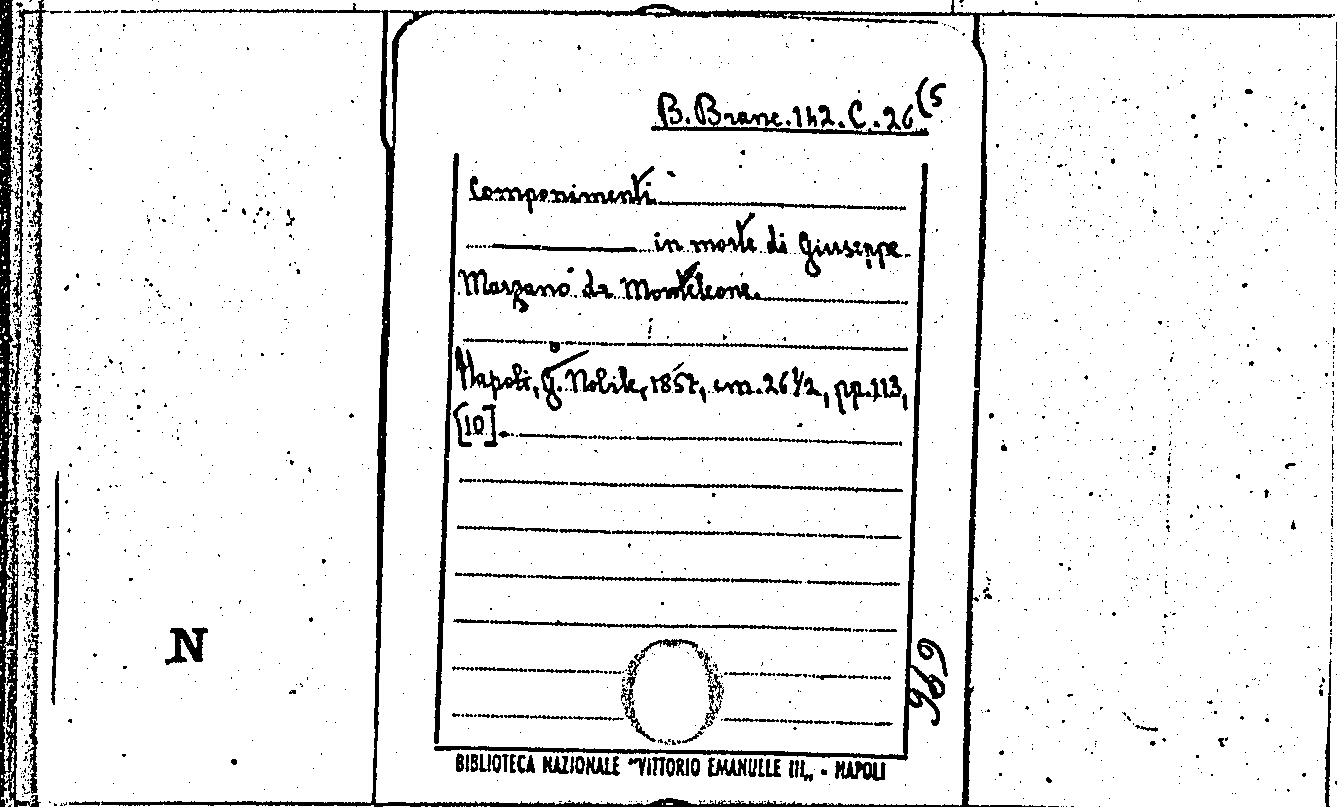 B. Branc. 142. C. 26(5
Componimenti
in morte di Giuseppe
Marzano da Monteleone.
Napoli, G. Nobile, 1857, cm. 26 1/2, pp. 113,
[10].
N
969
BIBLIOTECA NAZIONALE "VITTORIO EMANUELE III„ - NAPOLI